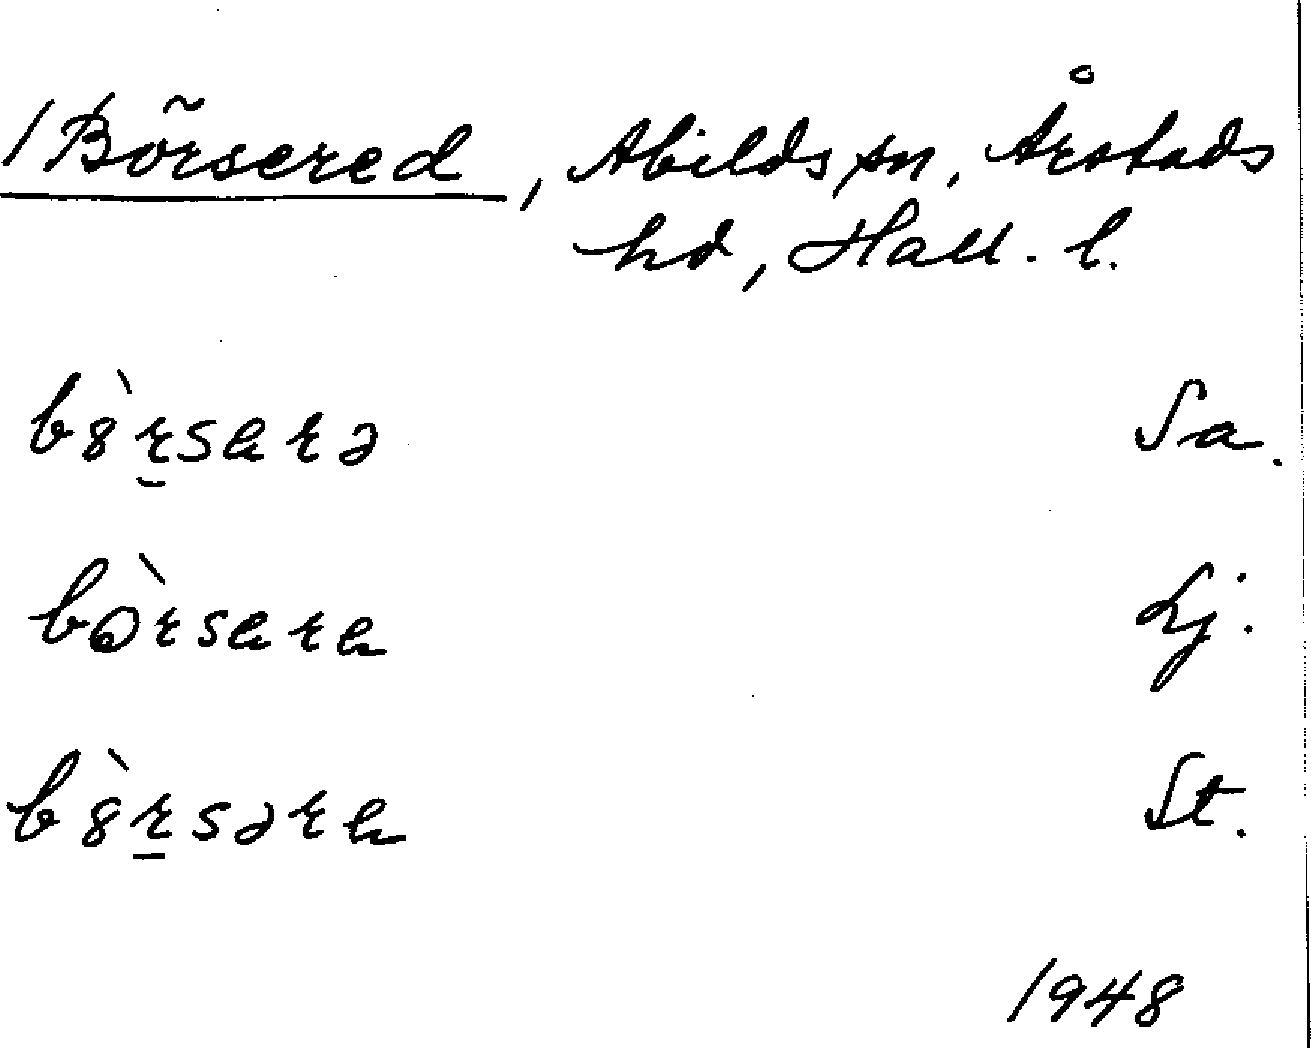 /Börsered, Abilds sn, Årstads
hd, Hall. l.
b8̀rsara Sa.
bòrsara Lj.
b8̀rsəra St.
1948